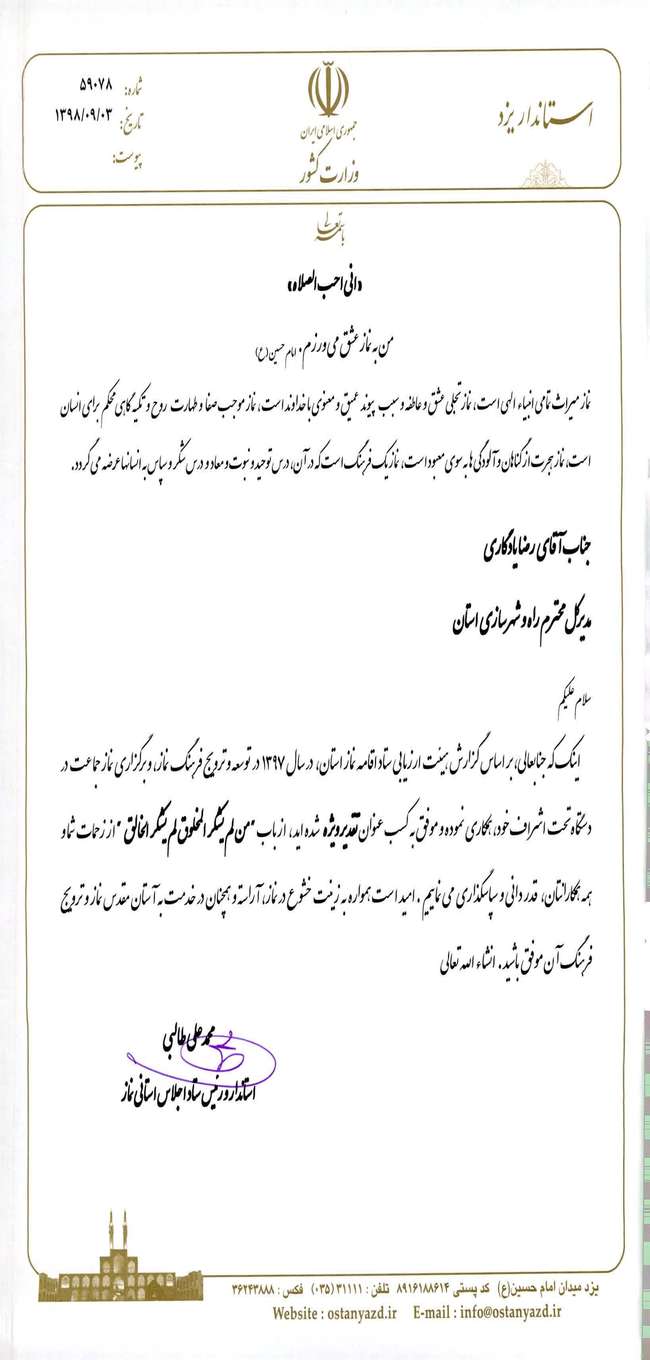 استاندار یزد
جمهوری اسلامی ایران
وزارت کشور
شماره: ۵۹۰۷۸
تاریخ: ۱۳۹۸/۰۹/۰۳
پیوست:
باسمه تعالی
«انی احب الصلاه»
من به نماز عشق می ورزم. امام حسین(ع)
نماز میراث تمامی انبیاء الهی است، نماز تجلی عشق و عاطفه و سبب پیوند عمیق و معنوی با خداوند است، نماز موجب صفا و طهارت روح و تکیه گاهی محکم برای انسان
است، نماز هجرت از گناهان و آلودگی ها به سوی معبود است، نماز یک فرهنگ است که در آن، درس توحید و نبوت و معاد و درس شکر و سپاس به انسانها عرضه می گردد.
جناب آقای رضا یادگاری
مدیرکل محترم راه و شهرسازی استان
سلام علیکم
اینک که جنابعالی، بر اساس گزارش هیئت ارزیابی ستاد اقامه نماز استان، در سال ۱۳۹۷ در توسعه و ترویج فرهنگ نماز، و برگزاری نماز جماعت در
دستگاه تحت اشراف خود، همکاری نموده و موفق به کسب عنوان تقدیر ویژه شده اید، از باب "من لم یشکر المخلوق لم یشکر الخالق" از زحمات شما و
همه همکارانتان، قدردانی و سپاسگذاری می نماییم. امید است همواره به زینت خشوع در نماز، آراسته و همچنان در خدمت به آستان مقدس نماز و ترویج
فرهنگ آن موفق باشید. انشاء الله تعالی
محمد علی طالبی
استاندار و رئیس ستاد اجلاس استانی نماز
یزد میدان امام حسین(ع) کد پستی ۸۹۱۶۱۸۸۶۱۴ تلفن : ۳۱۱۱۱ (۰۳۵) فکس : ۳۶۲۴۳۸۸۸
Website : ostanyazd.ir E-mail : info@ostanyazd.ir